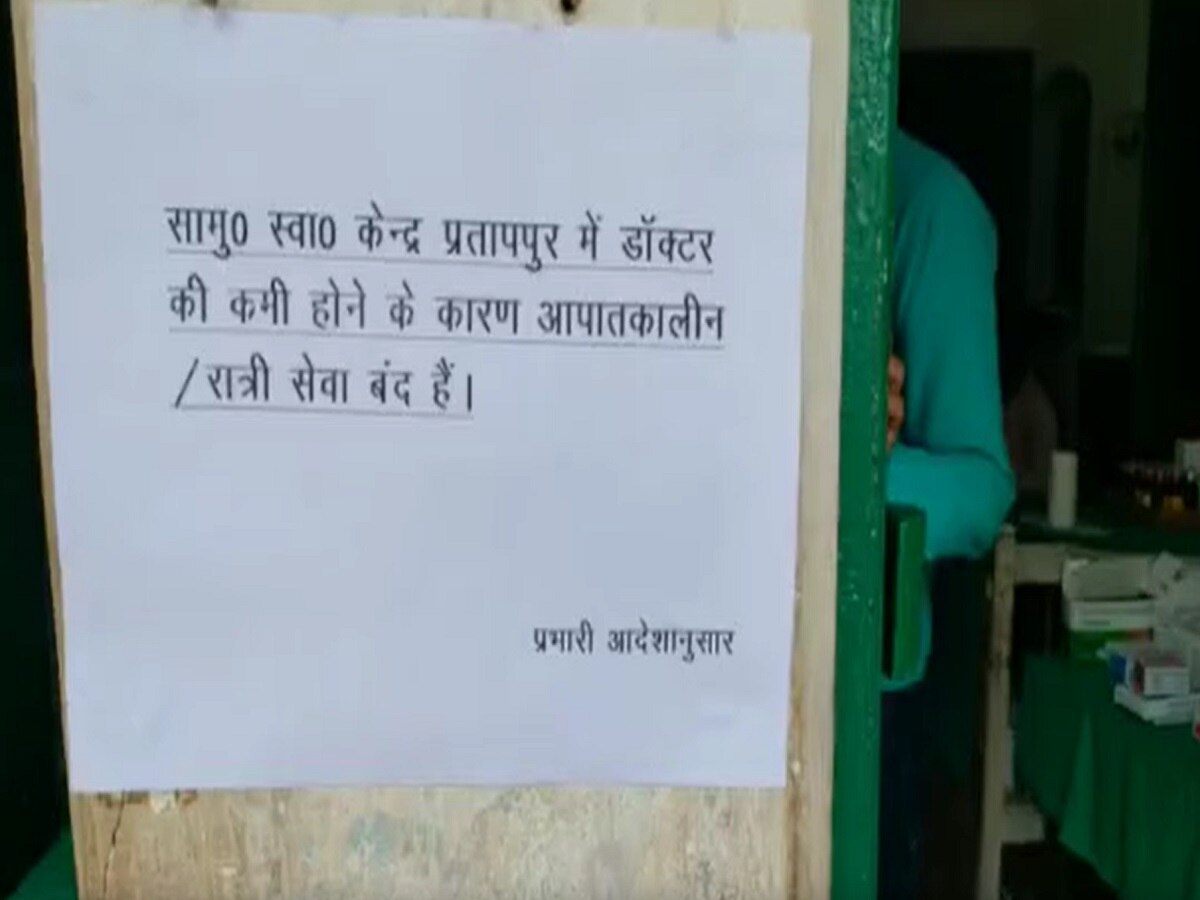 सामु0 स्वा0 केन्द्र प्रतापपुर में डॉक्टर
की कमी होने के कारण आपातकालीन
/रात्री सेवा बंद हैं।
प्रभारी आदेशानुसार